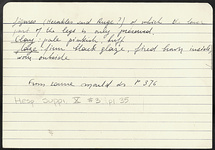 figures (Herakles and Kings?) of which the lower
part of the legs is only preserved.
Clay: pale pinkish buff
Glaze: firm black glaze, fired brown inside,
worn outside.
From same mould as P 376
Hesp. Suppl. X #3 pl 35